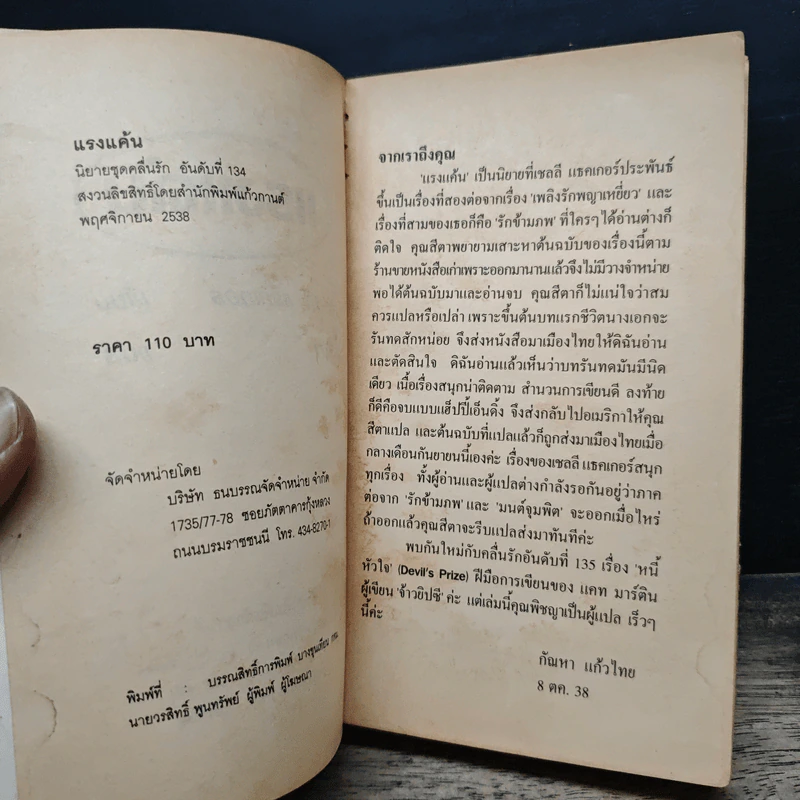 แรงแค้น
นิยายชุดคลื่นรัก อันดับที่ 134
สงวนลิขสิทธิ์โดยสำนักพิมพ์แก้วกานต์
พฤศจิกายน 2538
ราคา 110 บาท
จัดจำหน่ายโดย
บริษัท ธนบรรณจัดจำหน่าย จำกัด
1735/77-78 ซอยภัตตาคารกุ้งหลวง
ถนนบรมราชชนนี โทร. 434-8270-1
พิมพ์ที่ : บรรณสิทธิ์การพิมพ์ บางขุนเทียน กทม
นายวรสิทธิ์ พูนทรัพย์ ผู้พิมพ์ ผู้โฆษณา
จากเราถึงคุณ
'แรงแค้น' เป็นนิยายที่เชลลี แธคเกอร์ประพันธ์
ขึ้นเป็นเรื่องที่สองต่อจากเรื่อง 'เพลิงรักพญาเหยี่ยว' และ
เรื่องที่สามของเธอก็คือ 'รักข้ามภพ' ที่ใครๆ ได้อ่านต่างก็
ติดใจ คุณสีตาพยายามเสาะหาต้นฉบับของเรื่องนี้ตาม
ร้านขายหนังสือเก่าเพราะออกมานานแล้วจึงไม่มีวางจำหน่าย
พอได้ต้นฉบับมาและอ่านจบ คุณสีตาก็ไม่แน่ใจว่าสม
ควรแปลหรือเปล่า เพราะขึ้นต้นบทแรกชีวิตนางเอกจะ
รันทดสักหน่อย จึงส่งหนังสือมาเมืองไทยให้ดิฉันอ่าน
และตัดสินใจ ดิฉันอ่านแล้วเห็นว่าบทรันทดมันมีนิด
เดียว เนื้อเรื่องสนุกน่าติดตาม สำนวนการเขียนดี ลงท้าย
ก็ดีคือจบแบบแฮ็ปปี้เอ็นดิ้ง จึงส่งกลับไปอเมริกาให้คุณ
สีตาแปล และต้นฉบับที่แปลแล้วก็ถูกส่งมาเมืองไทยเมื่อ
กลางเดือนกันยายนนี้เองค่ะ เรื่องของเชลลี แธคเกอร์สนุก
ทุกเรื่อง ทั้งผู้อ่านและผู้แปลต่างกำลังรอกันอยู่ว่าภาค
ต่อจาก 'รักข้ามภพ' และ 'มนต์จุมพิต' จะออกเมื่อไหร่
ถ้าออกแล้วคุณสีตาจะรีบแปลส่งมาทันทีค่ะ
พบกันใหม่กับคลื่นรักอันดับที่ 135 เรื่อง 'หนี้
หัวใจ' (Devil's Prize) ฝีมือการเขียนของ แคท มาร์ติน
ผู้เขียน 'จ้าวยิปซี' ค่ะ แต่เล่มนี้คุณพิชญาเป็นผู้แปล เร็วๆ
นี้ค่ะ
กัณหา แก้วไทย
8 ตค. 38